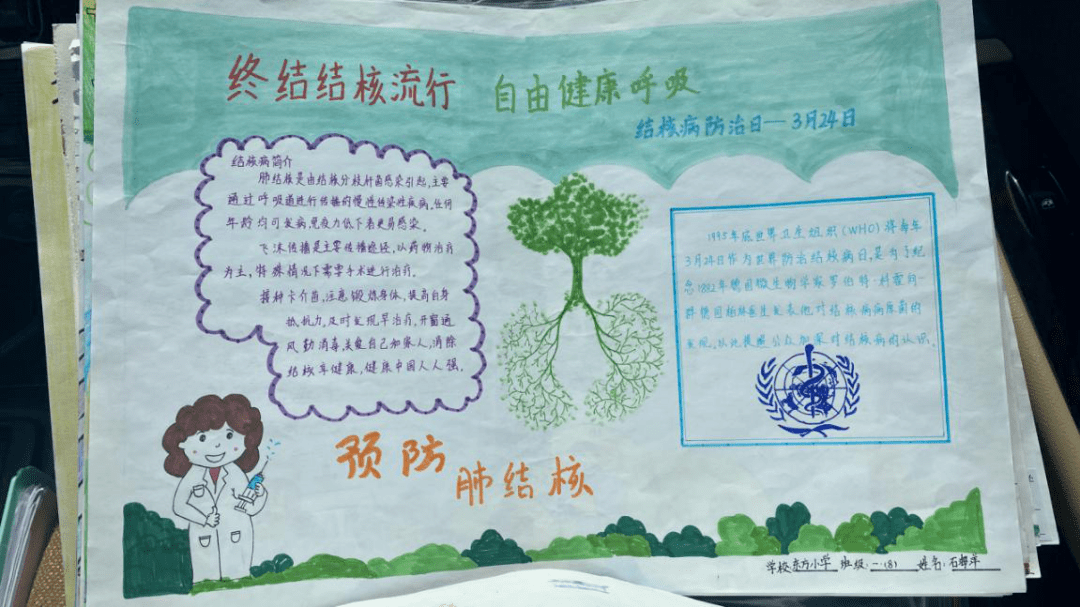 终结结核流行 自由健康呼吸
结核病防治日—3月24日
结核病简介
肺结核是由结核分枝杆菌感染引起,主要
通过呼吸道进行传播的慢性传染性疾病,任何
年龄均可发病,免疫力低下者更易感染。
飞沫传播是主要传播途径,以药物治疗
为主,特殊情况下需要手术进行治疗。
接种卡介苗,注意锻炼身体,提高自身
抵抗力,及时发现早治疗,开窗通
风勤消毒,关爱自己和家人,消除
结核享健康,健康中国人人强。
1995年底世界卫生组织(WHO)将每年
3月24日作为世界防治结核病日,是为了纪
念1882年德国微生物学家罗伯特·科霍向一
群德国柏林医生发表他对结核病病原菌的
发现,以此提醒公众加深对结核病的认识。
预防
肺结核
学校:东方小学 班级:一.(8) 姓名:石